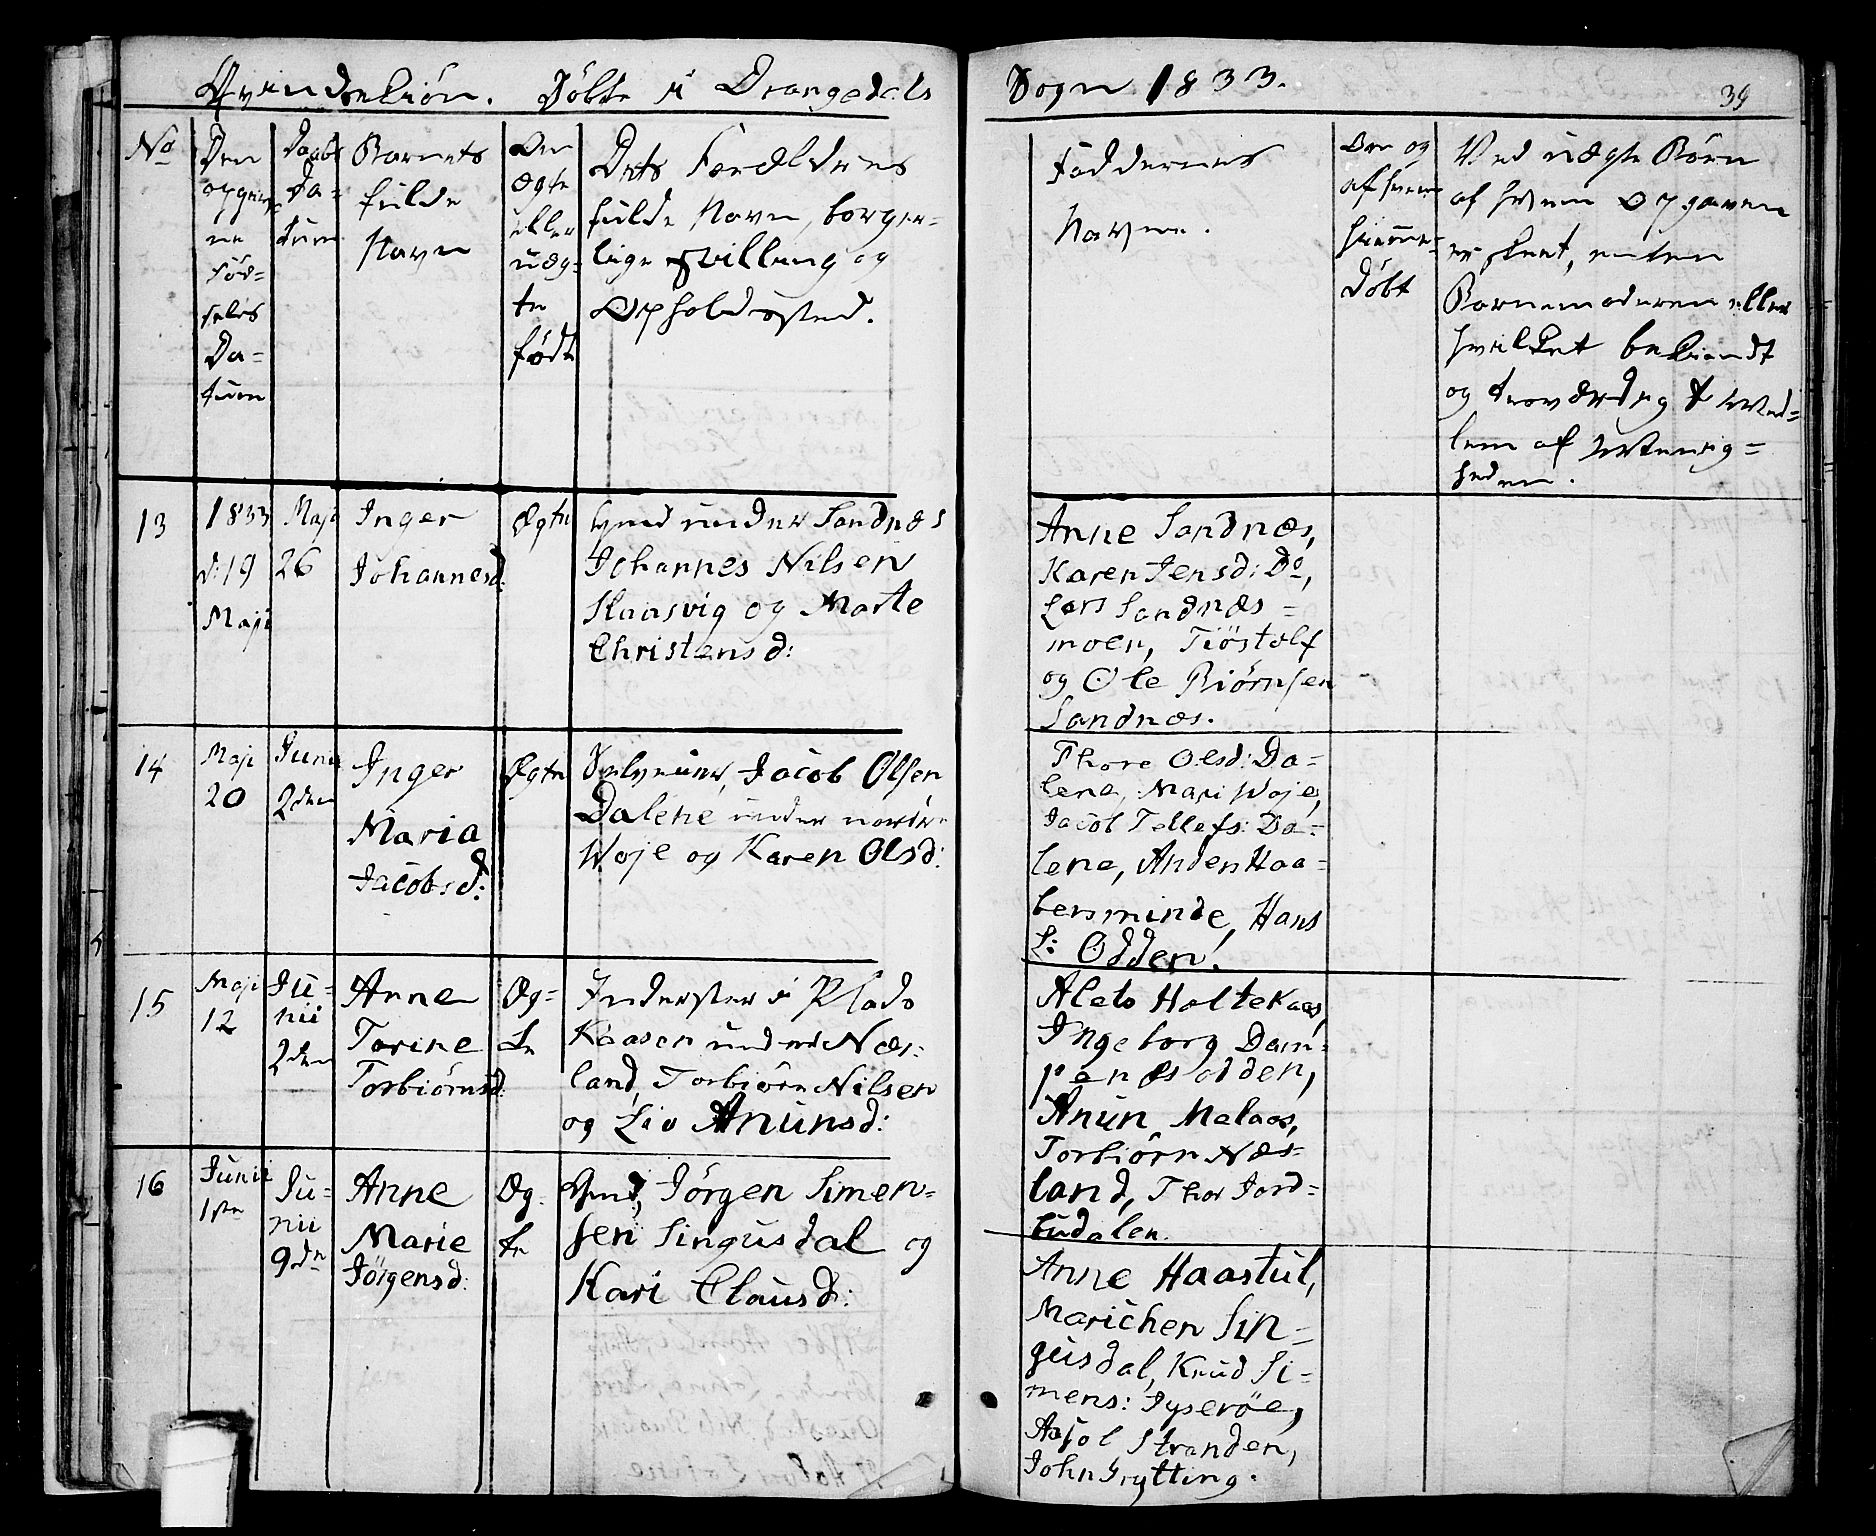 Qvindekiøn. Døbte i Drangedals Sogn 1833.
39
No
Den
opgivne
Fød=
sels
Da=
tum
Daabs
Da=
tum
Barnets
fulde
Navn
Om
ægte
eller
uæg=
te
født
Dets Forældres
fulde Navn, borger=
lige Stilling og
Opholdssted.
Faddernes
Navne.
Om og
af hvem
hiemme=
døbt
Ved uægte Børn
af hvem Opgaven
er skeet, enten
Barnemoderen eller
hvilket bekiendt
og troværdigt Med=
lem af Menig=
heden.
13
1833
d: 19
Maji
Maji
26
Inger
Johannesd:
Ægte
under Sandnæs
Johannes Nilsen
Kaasvig og Marte
Christensd:
Anne Sandnæs,
Karen Jensd: Do,
Lars Sandnæs=
moen, Tiøstolf
og Ole Biørnsen
Sandnæs.
14
Maji
20
Junii
2den
Inger
Maria
Jacobsd:
Ægte
Selveier, Jacob Olsen
Dalene under nordre
Woje og Karen Olsd:
Thore Olsd: Da=
lene, Mari Woje,
Jacob Tellefs: Da=
lene, Anden Haa=
bersminde, Hans
L: Odden.
15
Maji
12
Ju=
nii
2den
Anne
Torine
Torbiørnsd:
Æg=
te
Inderster i Plads
Kaasen under Næs=
land, Torbiørn Nilsen
og Liv Anunsd:
Alet Holtekaas,
Ingeborg Dam=
penæsodden,
Anun Melaas,
Torbiørn Næs=
land, Thor Jord=
budalen.
16
Junii
1ste
Ju=
nii
9de
Anne
Marie
Jørgensd:
Æg
te
Gmd, Jørgen Simen=
sen Singusdal og
Kari Clausd:
Anne Haastul,
Marichen Sin=
gusdal, Knud Si=
mens: Gyserøe,
Asjol Stranden,
John Grytting.